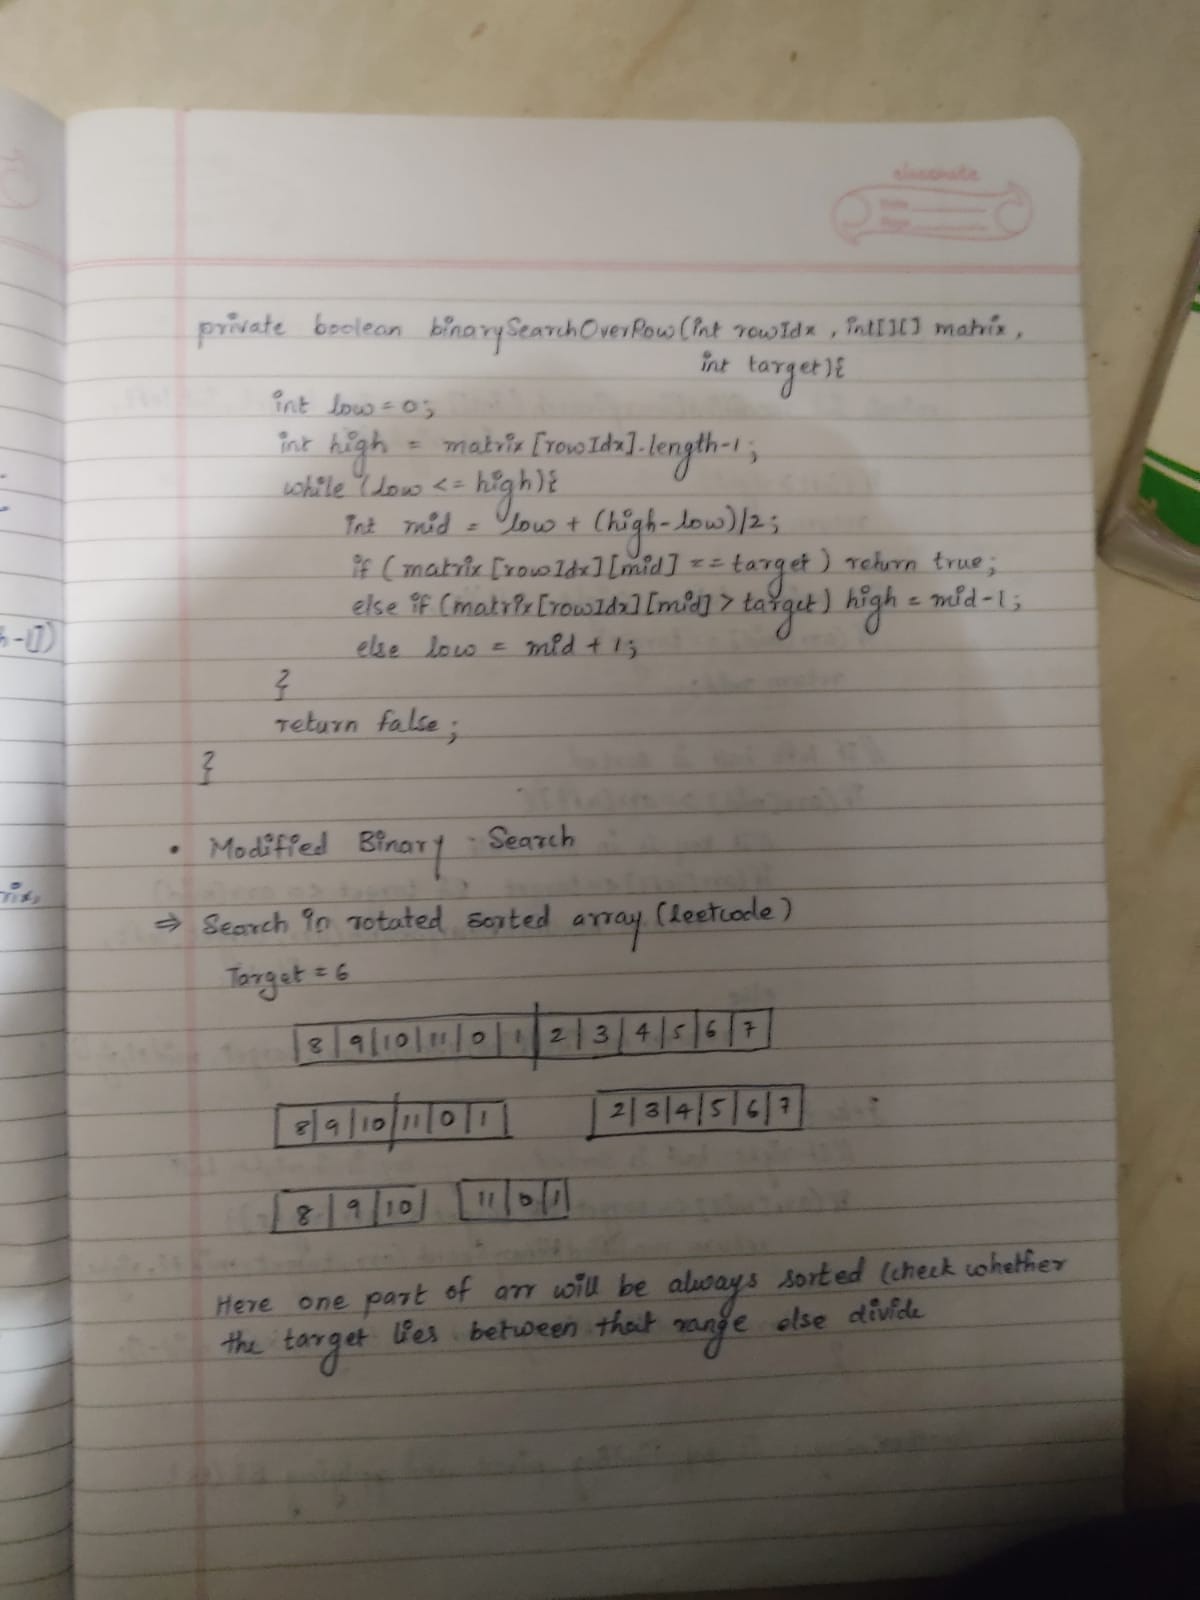 classmate
private boolean binarySearchOverRow(int rowIdx, int[][] matrix,
int target){
int low=0;
int high = matrix[rowIdx].length-1;
while (low <= high){
int mid = low + (high-low)/2;
if (matrix[rowIdx][mid] == target) return true;
else if (matrix[rowIdx][mid] > target) high = mid-1;
else low = mid + 1;
}
return false;
}
• Modified Binary Search
⇒ Search in rotated sorted array (leetcode)
Target = 6
8|9|10|11|0|1|2|3|4|5|6|7
8|9|10|11|0|1 2|3|4|5|6|7
8|9|10 11|0|1
Here one part of arr will be always sorted (check whether
the target lies between that range else divide